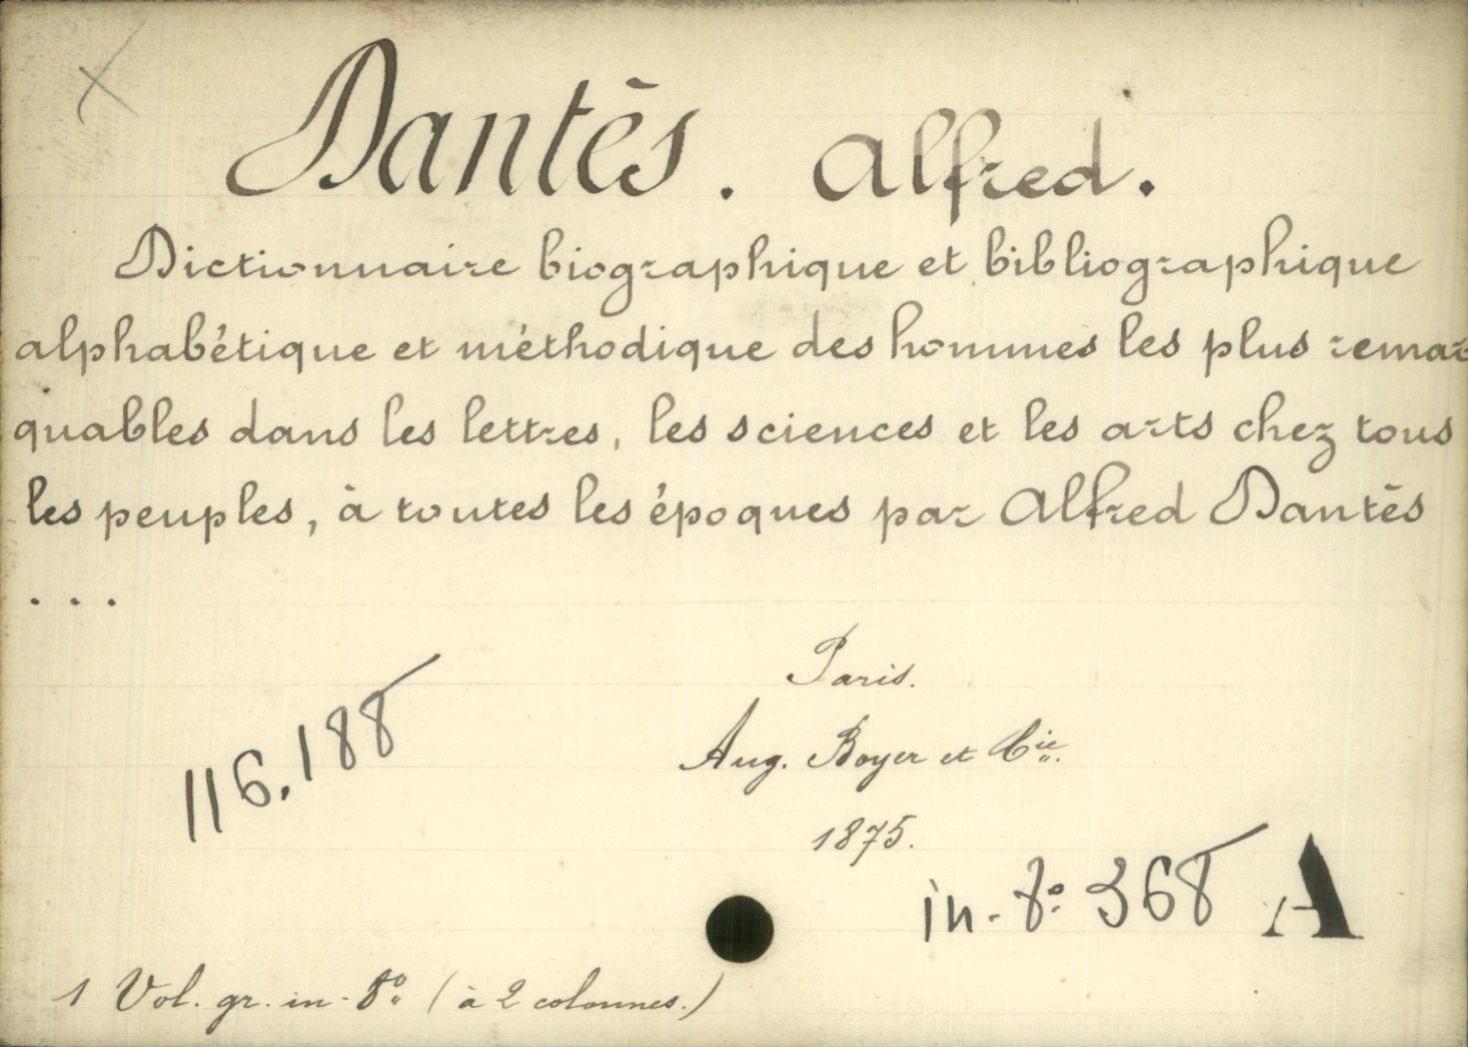 X
Dantès. Alfred.
Dictionnaire biographique et bibliographique
alphabétique et méthodique des hommes les plus remar
quables dans les lettres, les sciences et les arts chez tous
les peuples, à toutes les époques par Alfred Dantès
...
Paris.
116.188
Aug. Boyer et Cie.
1875.
in-8º 368 A
1 Vol. gr. in-8º (à 2 colonnes.)